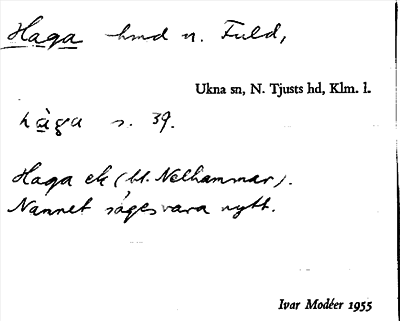 Haga hmd u. Fuld,
Ukna sn, N. Tjusts hd, Klm. l.
hàga s. 39.
Haga ek (bl. Nelhammar).
Namnet säges vara nytt.
Ivar Modéer 1955